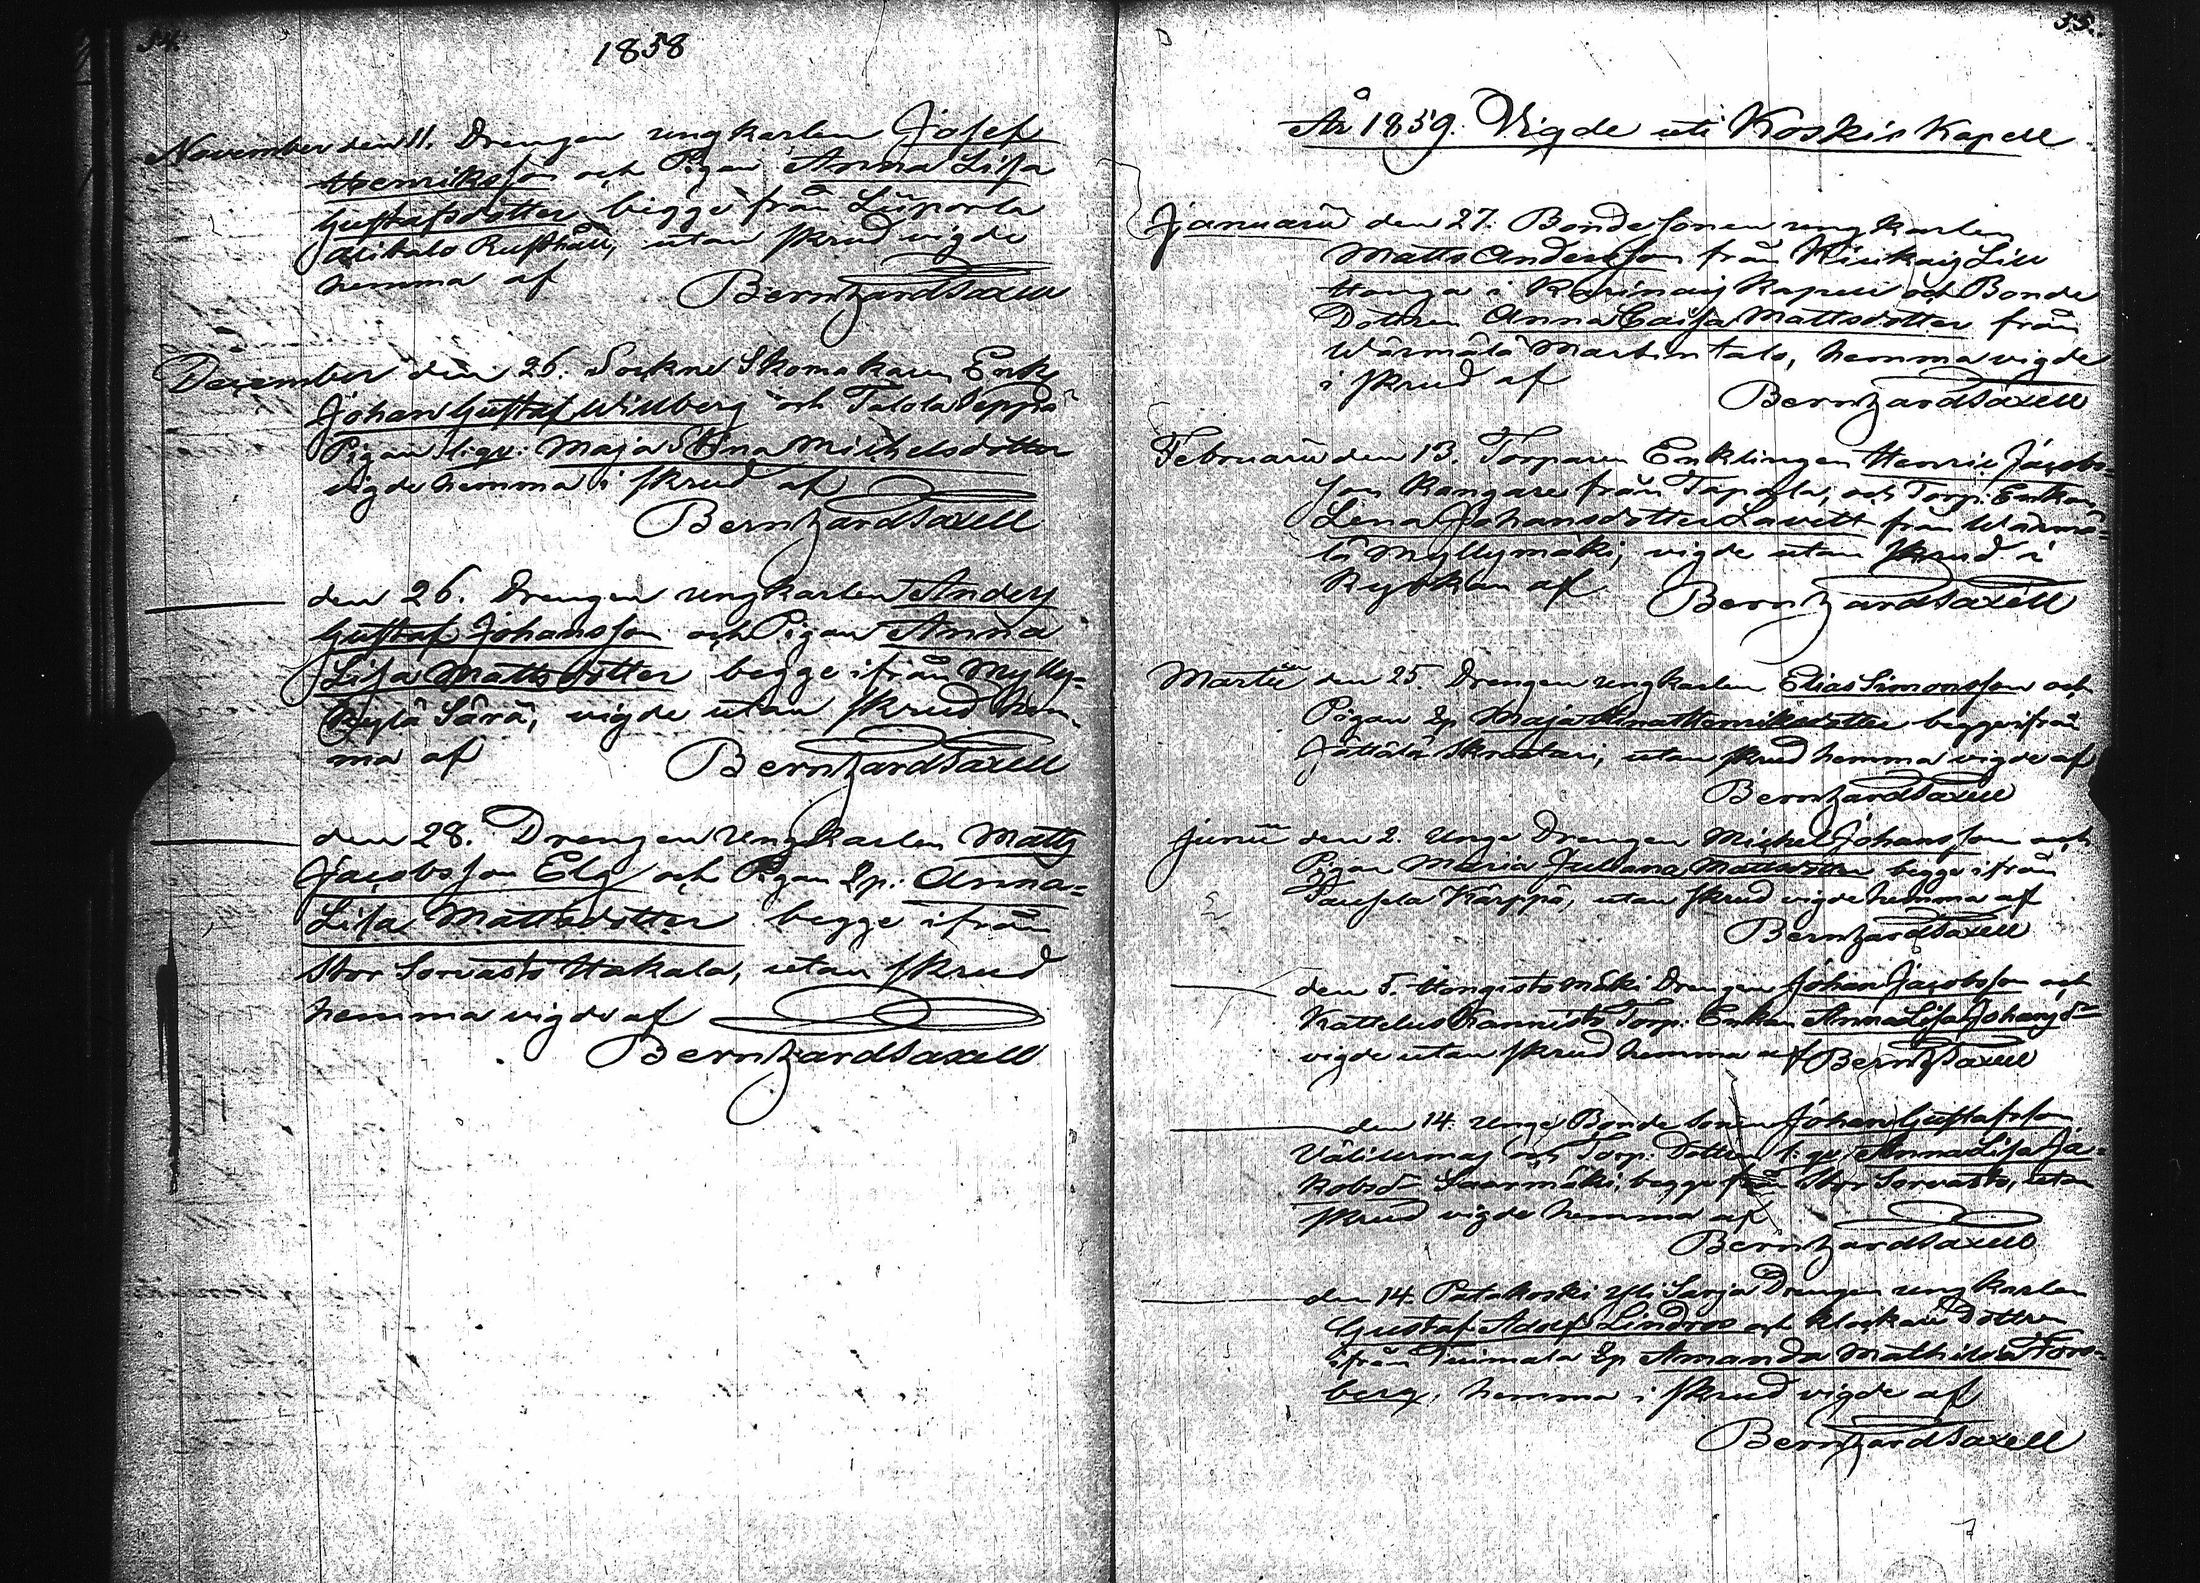 54.
1858
November den 11. Drengen ungkarlen Josef
Henriksson och Pigan Anna Lisa
Gustafsdotter begge från Liiporla
Alikalo Rusthåll, utan skrud vigde
hemma af
Bernhard Saxell
December den 26. Sockne Skomakaren Enkl
Johan Gustaf Willberg och Talola Seppä
Pigan Maja Stina Michelsdotter
vigde hemma i skrud af
Bernhard Saxell
den 26. Drengen ungkarlen Anders
Gustaf Johansson och Pigan Anna
Lisa Mattsdotter begge ifrån Mylly-
kylä Särä, vigde utan skrud hem-
ma af
Bernhard Saxell
den 28. Drengen Ungkarlen Matts
Jacobsson Elg och Pigan Ep: Anna
Lisa Mattsdotter begge ifrån
Stor Sorvasto Hakala, utan skrud
hemma vigde af
Bernhard Saxell
55.
År 1859. Vigde uti Koskis Kapell
Januarii den 27. Bondesonen ungkarlen
Matts Andersson från
i Karinais Kapell och Bonde
Dottren Anna Caisa Mattsdotter från
Wärmälä Martintalo, hemma vigde
i skrud af
Bernhard Saxell
Februarii den 13. Torparen Enklingen Henric Jacobs-
son Kangare från Tapala, och Torp: Enkan
Lena Johansdotter Lavett från Wärmä-
lä Myllymäki, vigde utan skrud i
Kyrkan af
Bernhard Saxell
Martii den 25. Drengen ungkarlen Elias Simonsson och
Pigan Ep Maja Stina Henriksdotter begge ifrån
Jättälä Skrattari, utan skrud hemma vigde af
Bernhard Saxell
Junii den 2. Unge Drengen Michel Johansson och
Pigan Maria Juliana Mattsdotter begge ifrån
Tausela Kärppä, utan skrud vigde hemma af
Bernhard Saxell
den 5. Hongisto Mäki Drengen Johan Jacobsson och
Kattelus Kannisto Torp: Enkan Anna Lisa Johansd:r
vigde utan skrud hemma af Bernh Saxell
den 14. Unge Bonde Sonen Johan Gustafsson
Välitermas och Torp: Dottren Anna Lisa Ja-
kobsd:r Saarimäki, begge från Stor Sorvasto, utan
skrud vigde hemma af
Bernhard Saxell
den 14. Patakoski Yli Sarja Drengen ungkarlen
Gustaf Adolf Lindros och klockare Dottren
ifrån Tuimala Ep Amanda Mathilda Fors-
berg, hemma i skrud vigde af
Bernhard Saxell